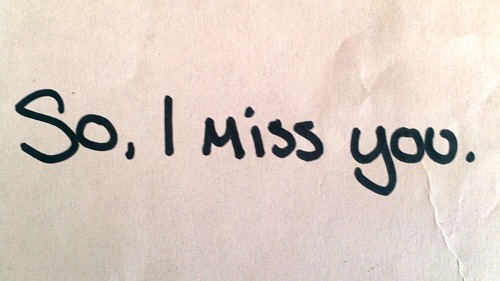 So, I miss you.